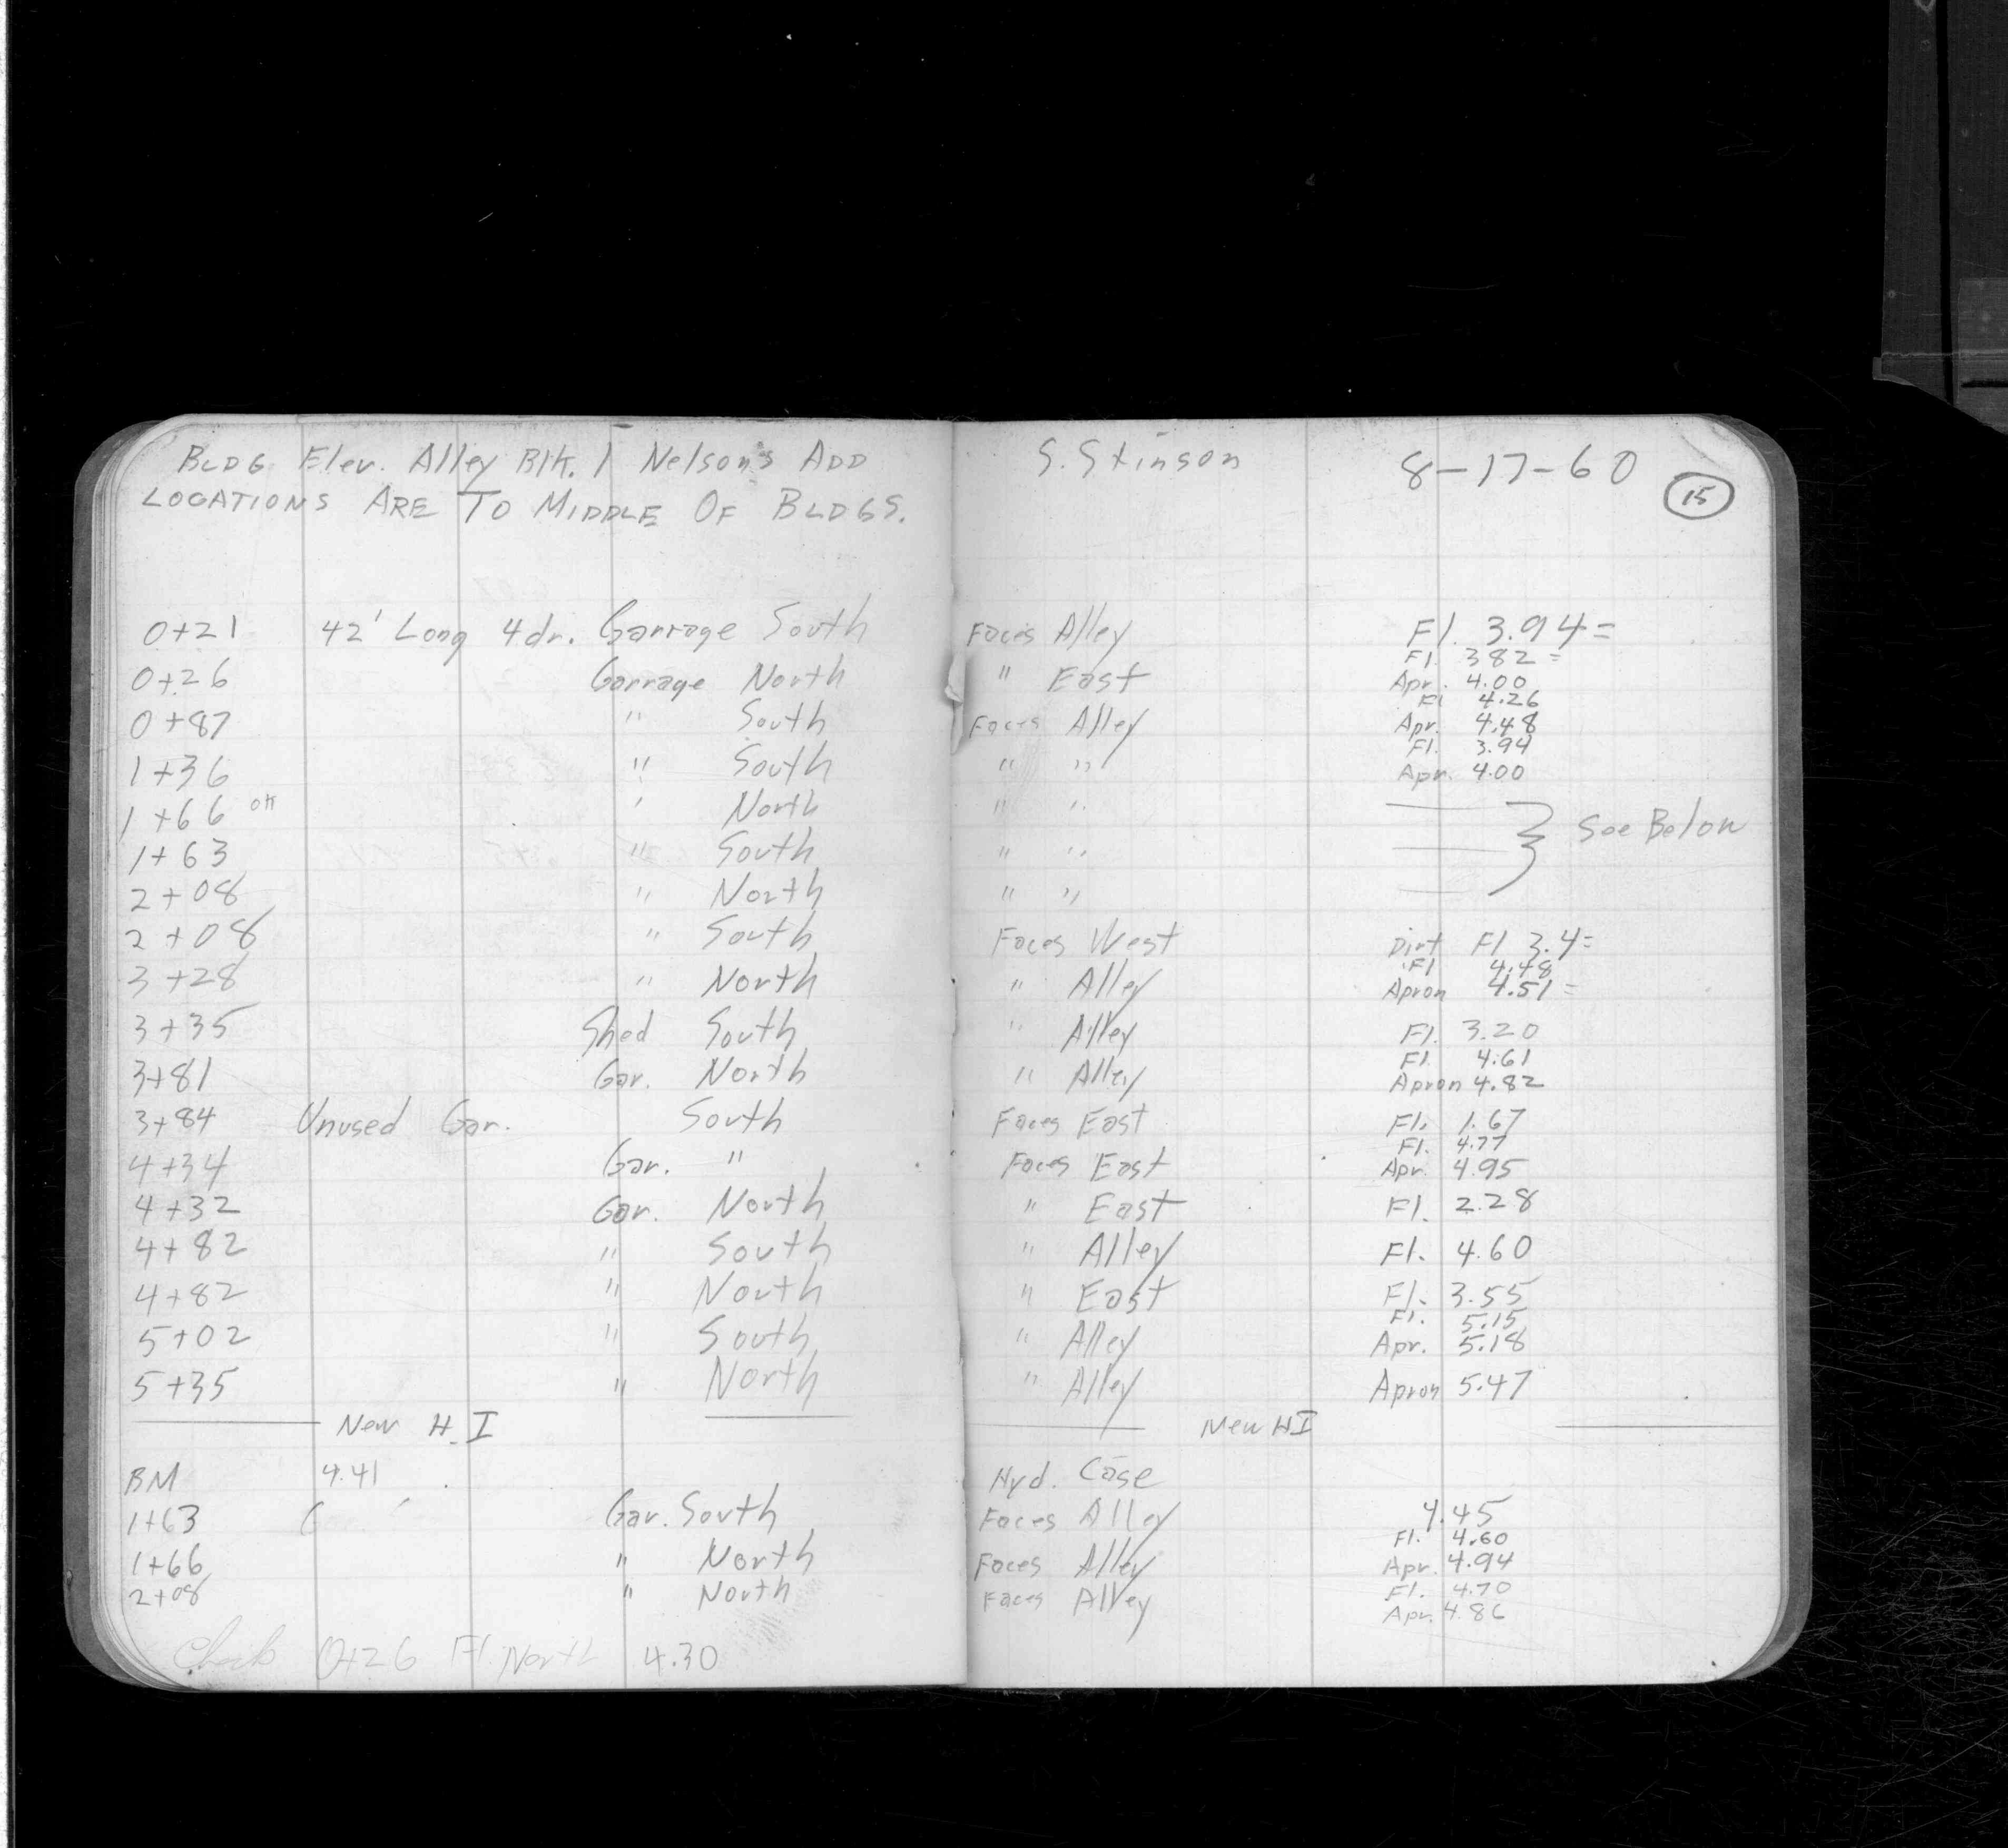 BLDG Elev. Alley Blk. 1 Nelson's ADD S. Stinson 8-17-60 15
LOCATIONS ARE TO MIDDLE OF BLDGS.
0+21 42' Long 4dr. Garrage South Faces Alley Fl. 3.94=
Fl. 382=
0+26 Garrage North " East Apr. 4.00
Fl 4.26
0+87 " South Faces Alley Apr. 4.48
Fl. 3.94
1+36 " South " " Apr. 4.00
1+66 OK " North " "
1+63 " South " " See Below
2+08 " North " "
2+08 " South Faces West Dirt Fl 3.4=
Fl 4.48
3+28 " North " Alley Apron 4.51=
3+35 Shed South " Alley Fl. 3.20
Fl. 4.61
3+81 Gar. North " Alley Apron 4.82
3+84 Unused Gar. South Faces East Fl. 1.67
Fl. 4.77
4+34 Gar. " Faces East Apr. 4.95
4+32 Gar. North " East Fl. 2.28
4+82 " South " Alley Fl. 4.60
4+82 " North " East Fl. 3.55
Fl. 5.15
5+02 " South " Alley Apr. 5.18
5+35 " North " Alley Apron 5.47
New H.I New HI
BM 4.41 Hyd. Case
1+63 Gar. South Faces Alley 4.45
Fl. 4.60
1+66 " North Faces Alley Apr. 4.94
Fl. 4.70
2+08 " North Faces Alley Apr. 4.86
Check 0+26 Fl. North 4.30